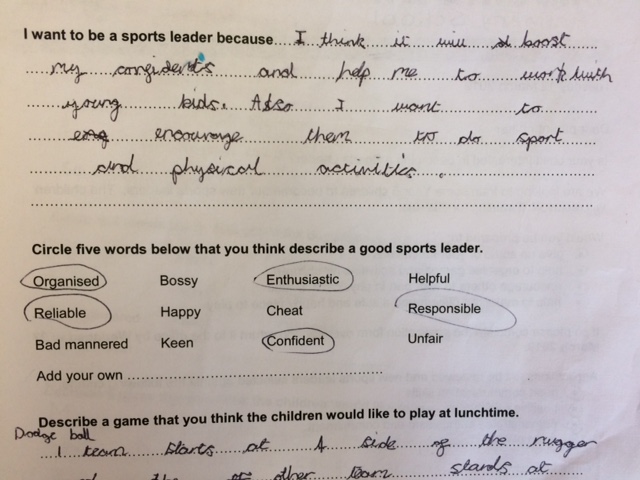 I want to be a sports leader because I think it will boost
my confident's and help me to work with
young kids. Also I want to
encourage them to do sport
and physical activities.
Circle five words below that you think describe a good sports leader.
Organised Bossy Enthusiastic Helpful
Reliable Happy Cheat Responsible
Bad mannered Keen Confident Unfair
Add your own
Describe a game that you think the children would like to play at lunchtime.
Dodge ball
1 team starts at 1 side of the rugger
the other team stands at